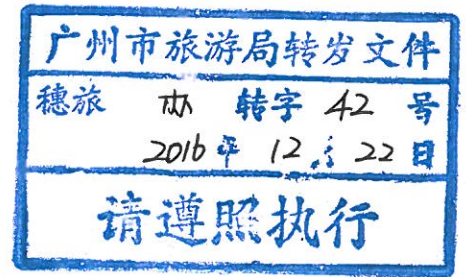 广州市旅游局转发文件
穗旅 办 转字 42 号
2016 年 12 月 22 日
请遵照执行